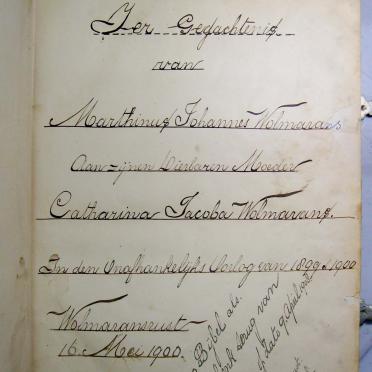 Ter Gedachtenis
van
Marthinus Johannes Wolmarans
Aan zijnen Dierbaren Moeder
Catharina Jacoba Wolmarans.
In den Onafhankelijks Oorlog van 1899 & 1900
Wolmaransrust
16 Mei 1900
Bijbel als
van